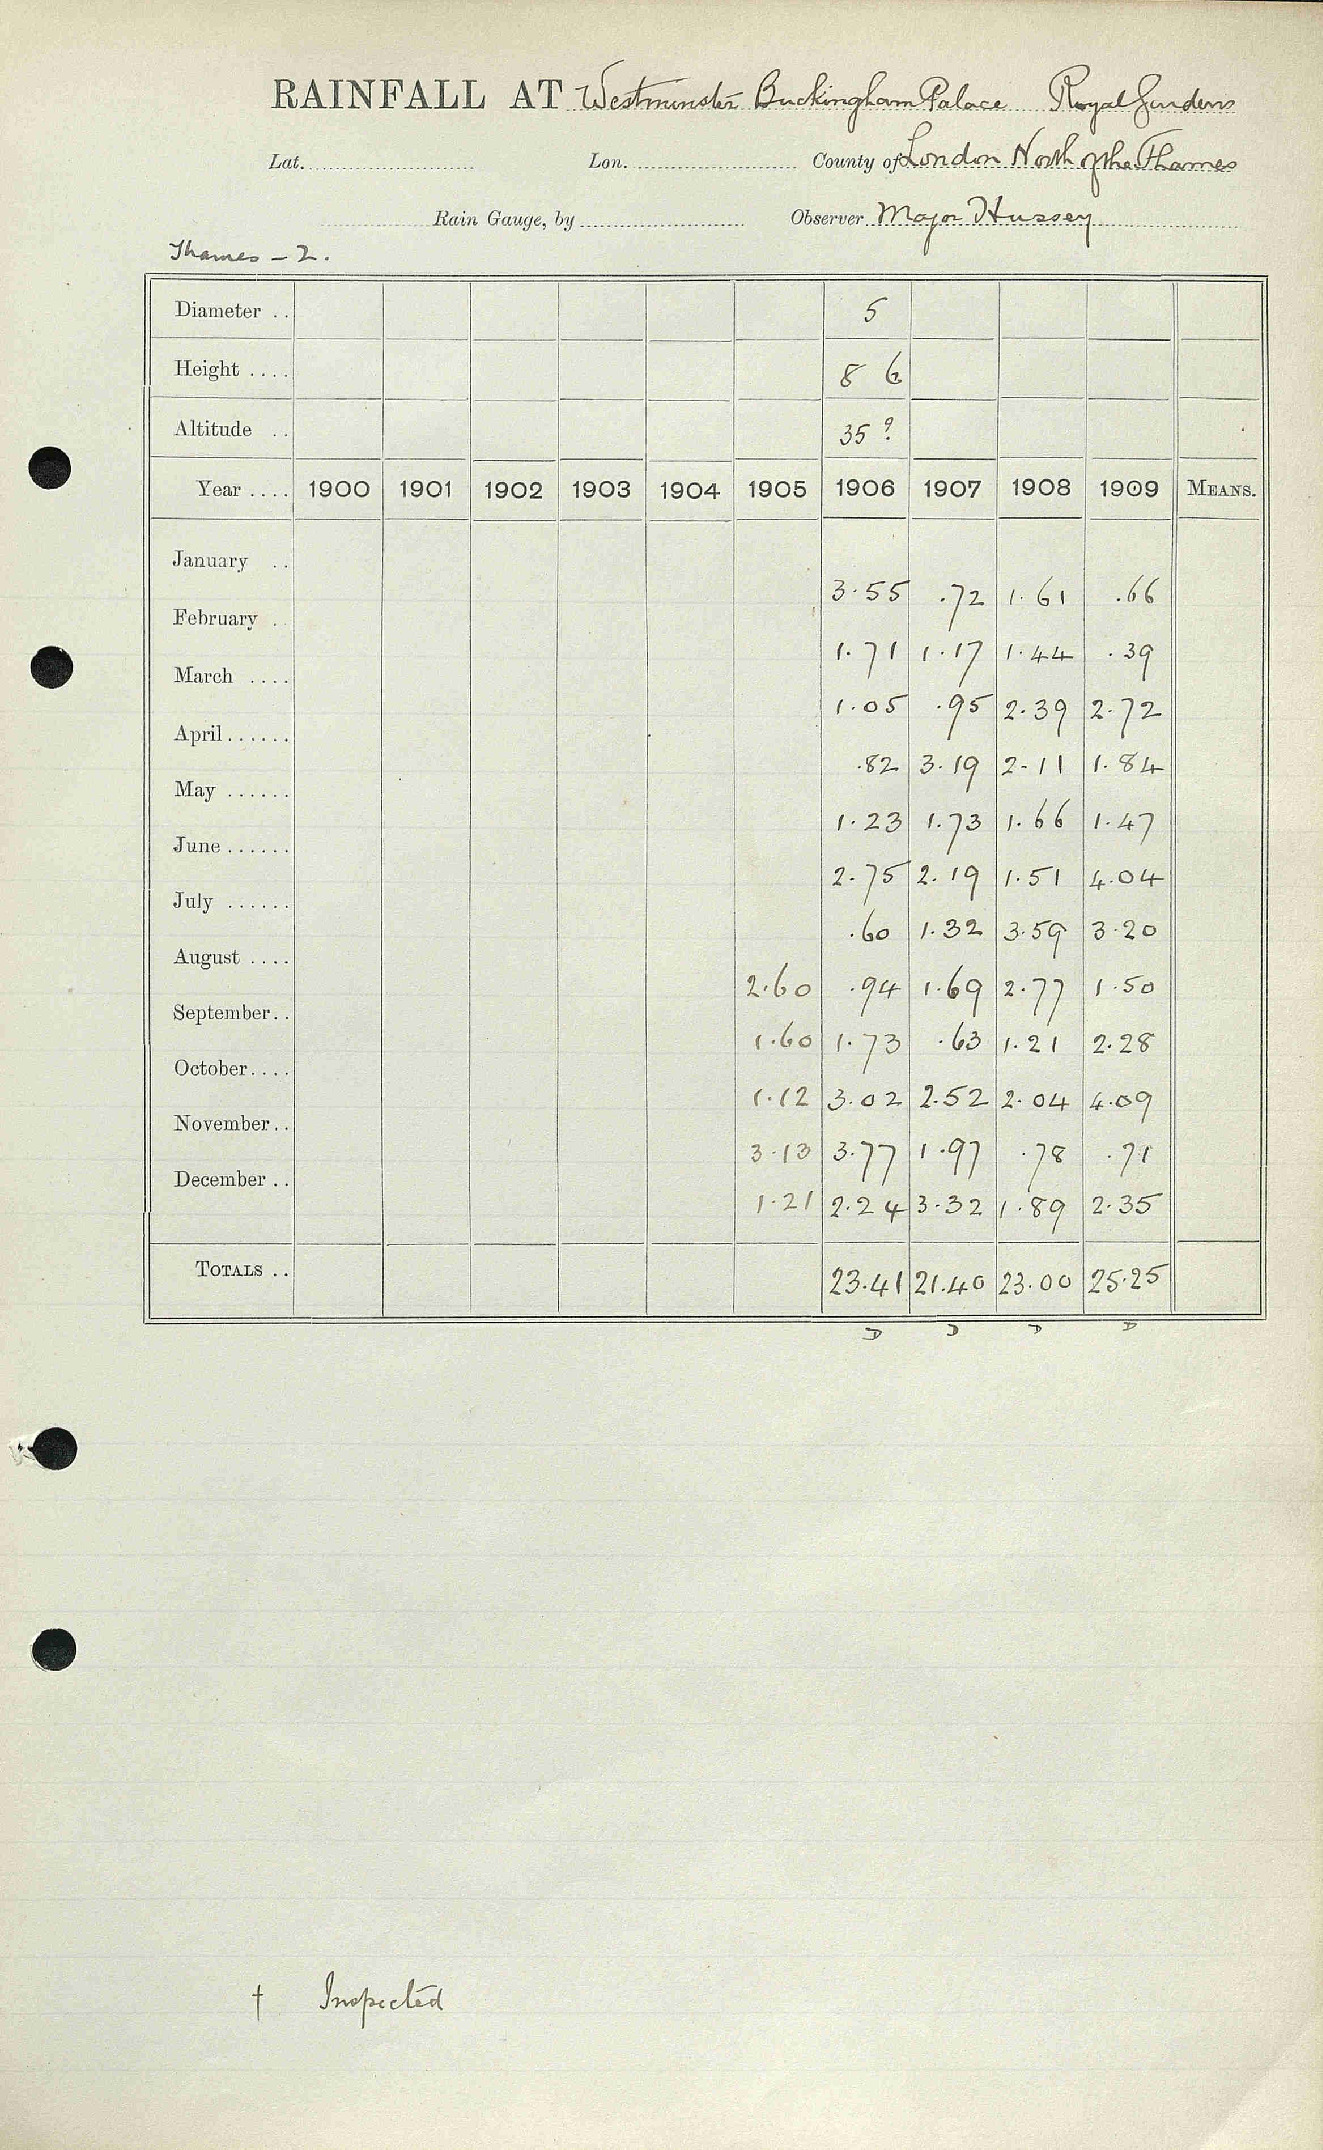 RAINFALL AT Westminster Buckingham Palace Royal Gardens
Lat. Lon. County of London North of the Thames
Rain Gauge, by Observer Major Hussey
Thames - 2.
Diameter .. 5
Height .... 8 6
Altitude .. 35 ?
Year .... 1900 1901 1902 1903 1904 1905 1906 1907 1908 1909 MEANS.
January .. 3.55 .72 1.61 .66
February . 1.71 1.17 1.44 .39
March .... 1.05 .95 2.39 2.72
April...... .82 3.19 2.11 1.84
May ...... 1.23 1.73 1.66 1.47
June ...... 2.75 2.19 1.51 4.04
July ...... .60 1.32 3.59 3.20
August .... 2.60 .94 1.69 2.77 1.50
September.. 1.60 1.73 .63 1.21 2.28
October.... 1.12 3.02 2.52 2.04 4.09
November.. 3.13 3.77 1.97 .78 .71
December .. 1.21 2.24 3.32 1.89 2.35
TOTALS .. 23.41 21.40 23.00 25.25
D D D D
† Inspected